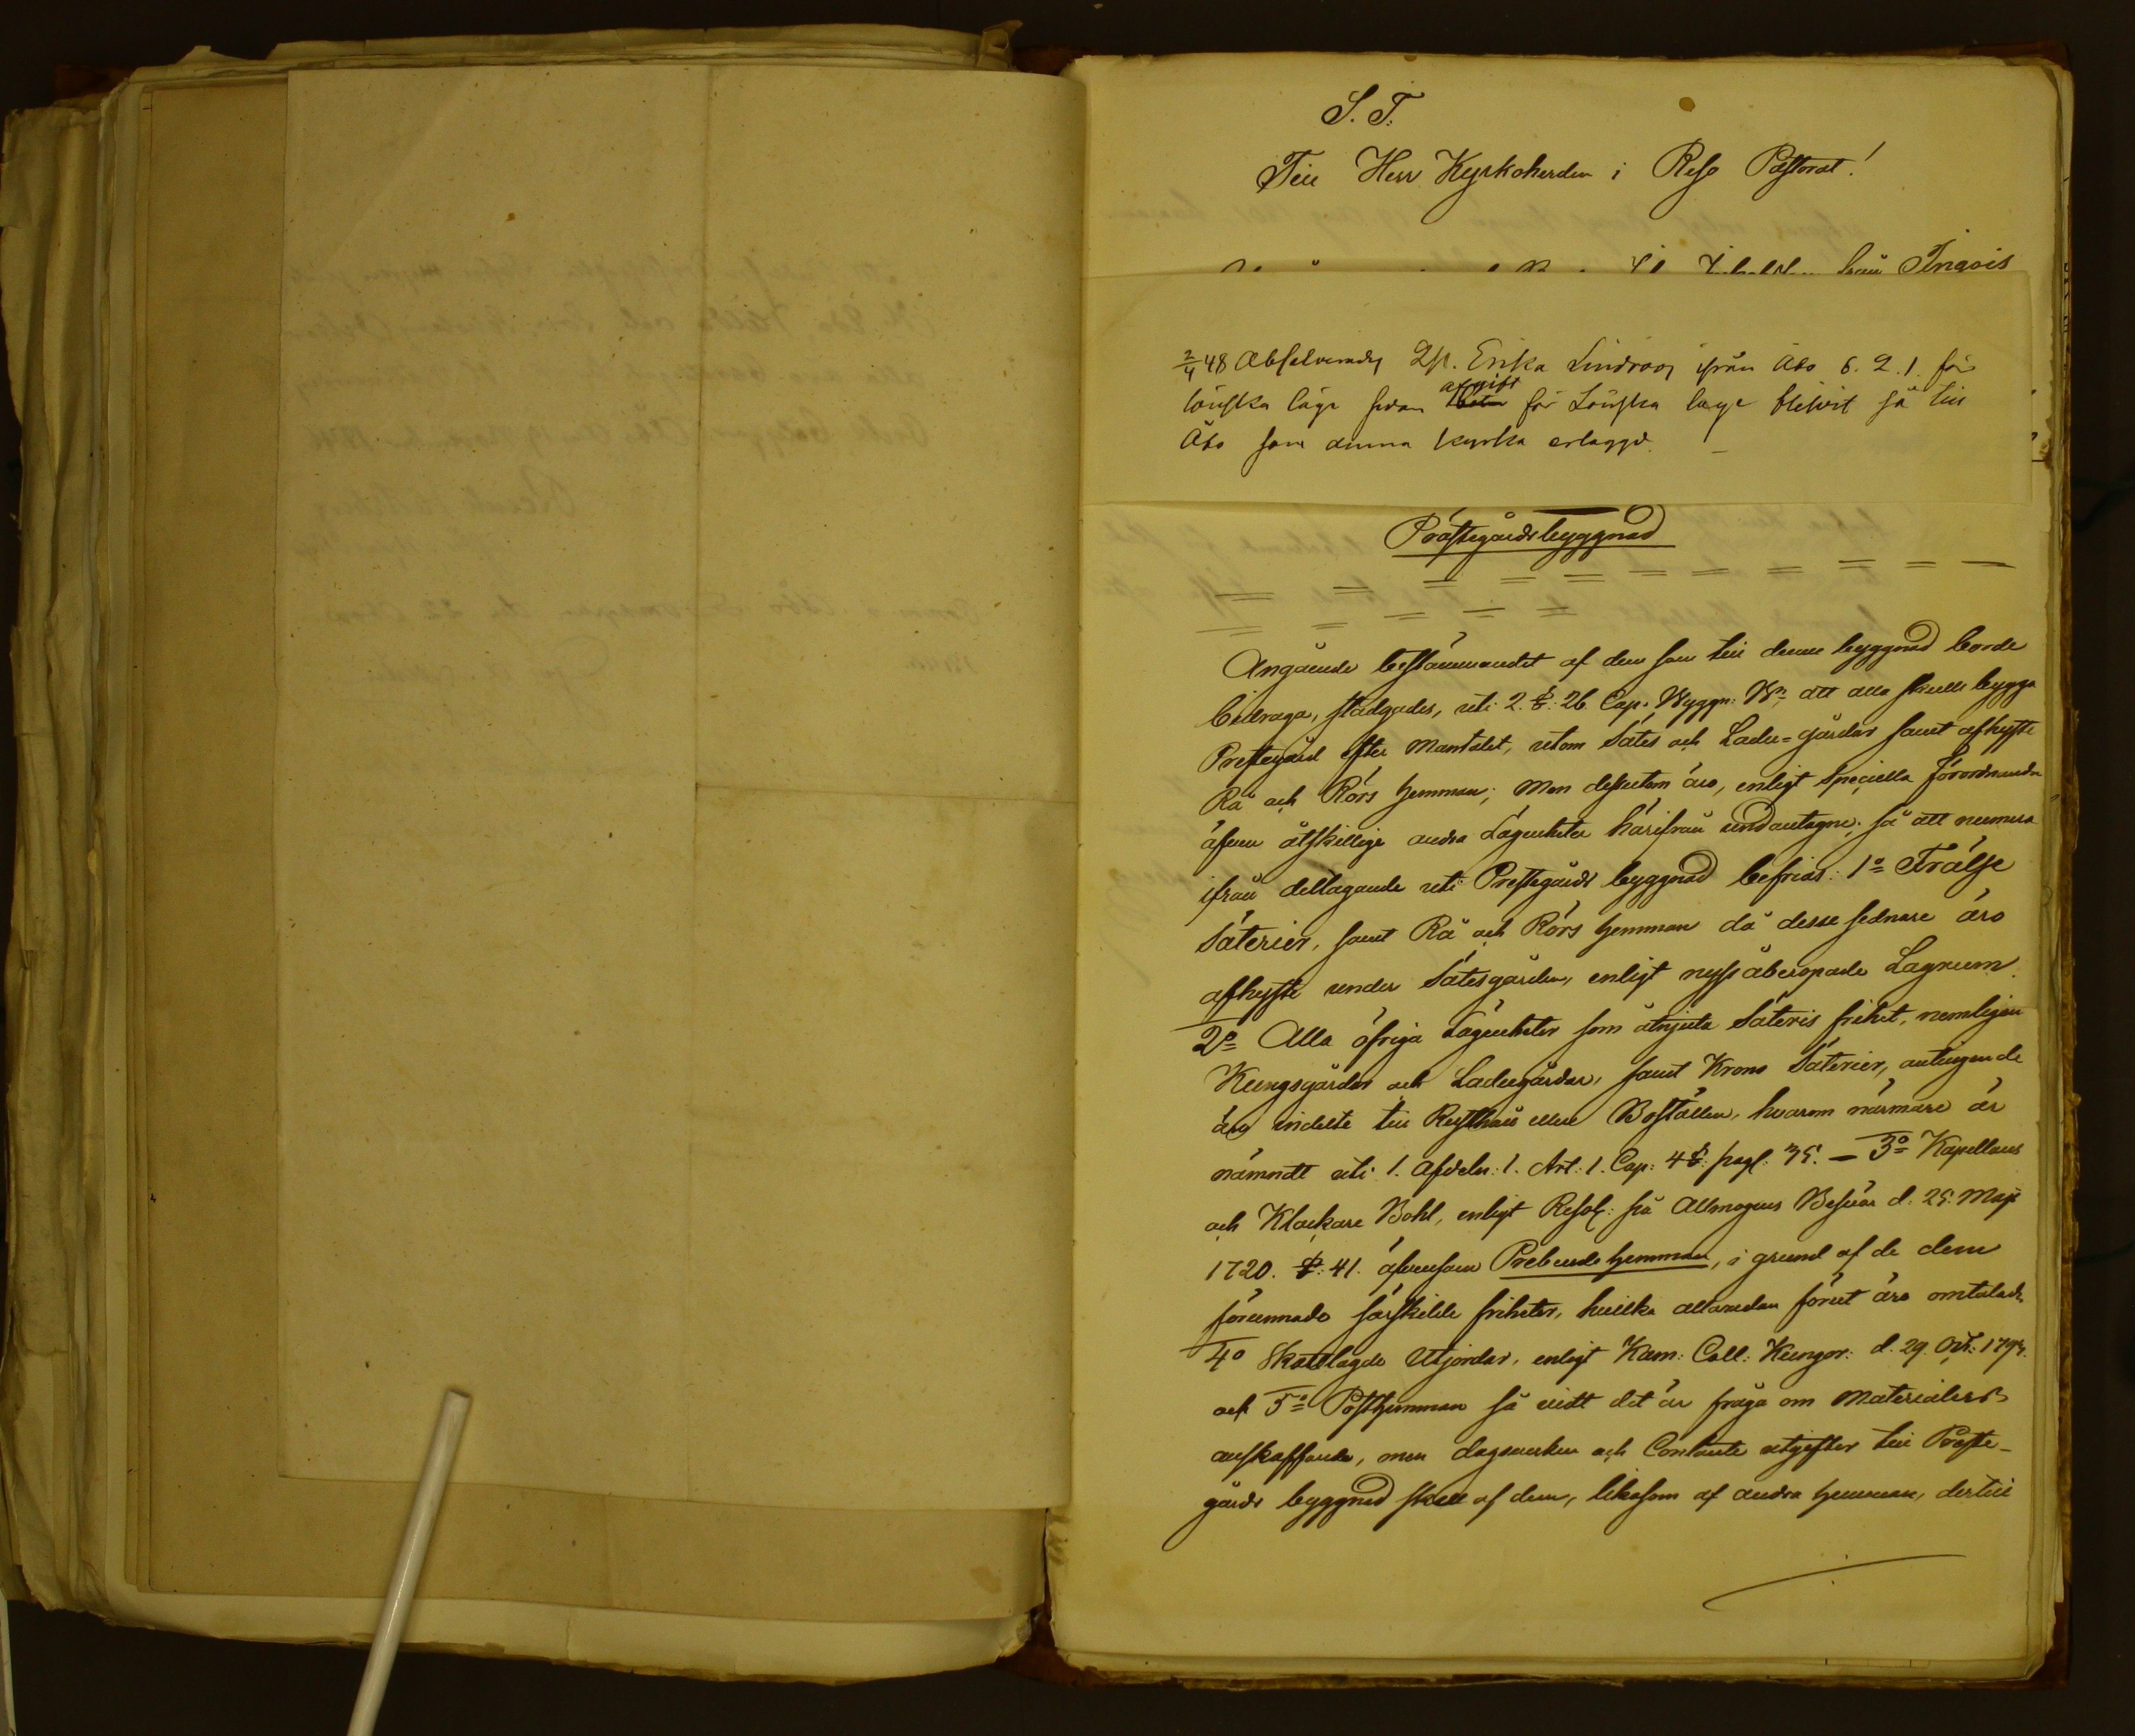 S. T.
Till Herr Kyrkoherden i Reso Pastorat!
från Ingois
2/4 48 Absolverades Qp. Erika Lindroos ifrån Åbo 6. 2. 1. för
lönska läge sedan afgift för Lönska läge blifvit så till
Åbo som denna kyrka erlaggd.
Prästegårdsbyggnad
Angående bestämmandet af dem som till denne byggnad borde
bidraga, stadgades, uti 2. §. 26 Cap. Byggn: B. att alla skulle bygga
Prestegård efter mantalet, utom Sätes och Ladu-gårdar samt afhyste
Rå och Rörs hemman; Men dessutom äro, enligt speciella förordnande
äfven åtskillige andra Lägenheter härifrån undantagne; så att numera
ifrån deltagande uti Prestegårds byggnad befrias: 1º Frälse
Säterier, samt Rå och Rörs hemman då desse sednare äro
afhyste under Sätesgården, enligt nyss åberopade Lagrum.
2º Alla öfriga Lägenheter som åtnjuta Säteris frihet, nemligen
Kungsgårdar och Ladugårdar, samt Krono Säterier, antingen de
äro indelte till Rusthåll eller Boställen, hvarom närmare är
nämndt uti 1. Afdeln: 1. Art: 1. Cap: 4 §: pag: 35. — 3º Kapellans
och Klockare Bohl, enligt Resol: på Allmogens Besvär d: 25. Maji
1720. §: 41. äfvensom Prebende hemman, i grund af de dem
förunnade särskilde friheter, hvilka allaredan förut äro omtalade
4º Skattlagde Utjordar, enligt Kam: Coll: Kungör: d. 29. Oct: 1794.
och 5º Posthemman så vidt det är fråga om Materialiers
anskaffande, men dagsverken och Contante utgifter till Preste-
gårds byggnad skall af dem, likasom af andra hemman, dertill